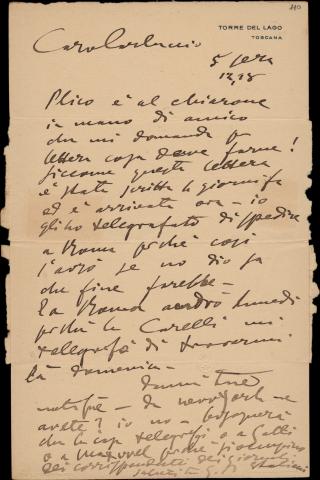 110
TORRE DEL LAGO
TOSCANA
Caro Carluccio
5 sera
Plico è al chiarone
in mano di amico
che mi domanda per
lettera cosa deve farne!
siccome questa lettera
è stata scritta 6 giorni fa
ed è arrivata ora - io
gli ho telegrafato di spedire
a Roma perchè così
l'avrò se no dio sa
che fine farebbe -
a Roma andrò lunedì
perchè la Carelli mi
telegrafò di trovarmi
là domenica -
Dammi tue
notizie - da
avete? io no bisognerà
che la casa telegrafi a Gatti
o a
dei corrispondenti dei giornali
italiani